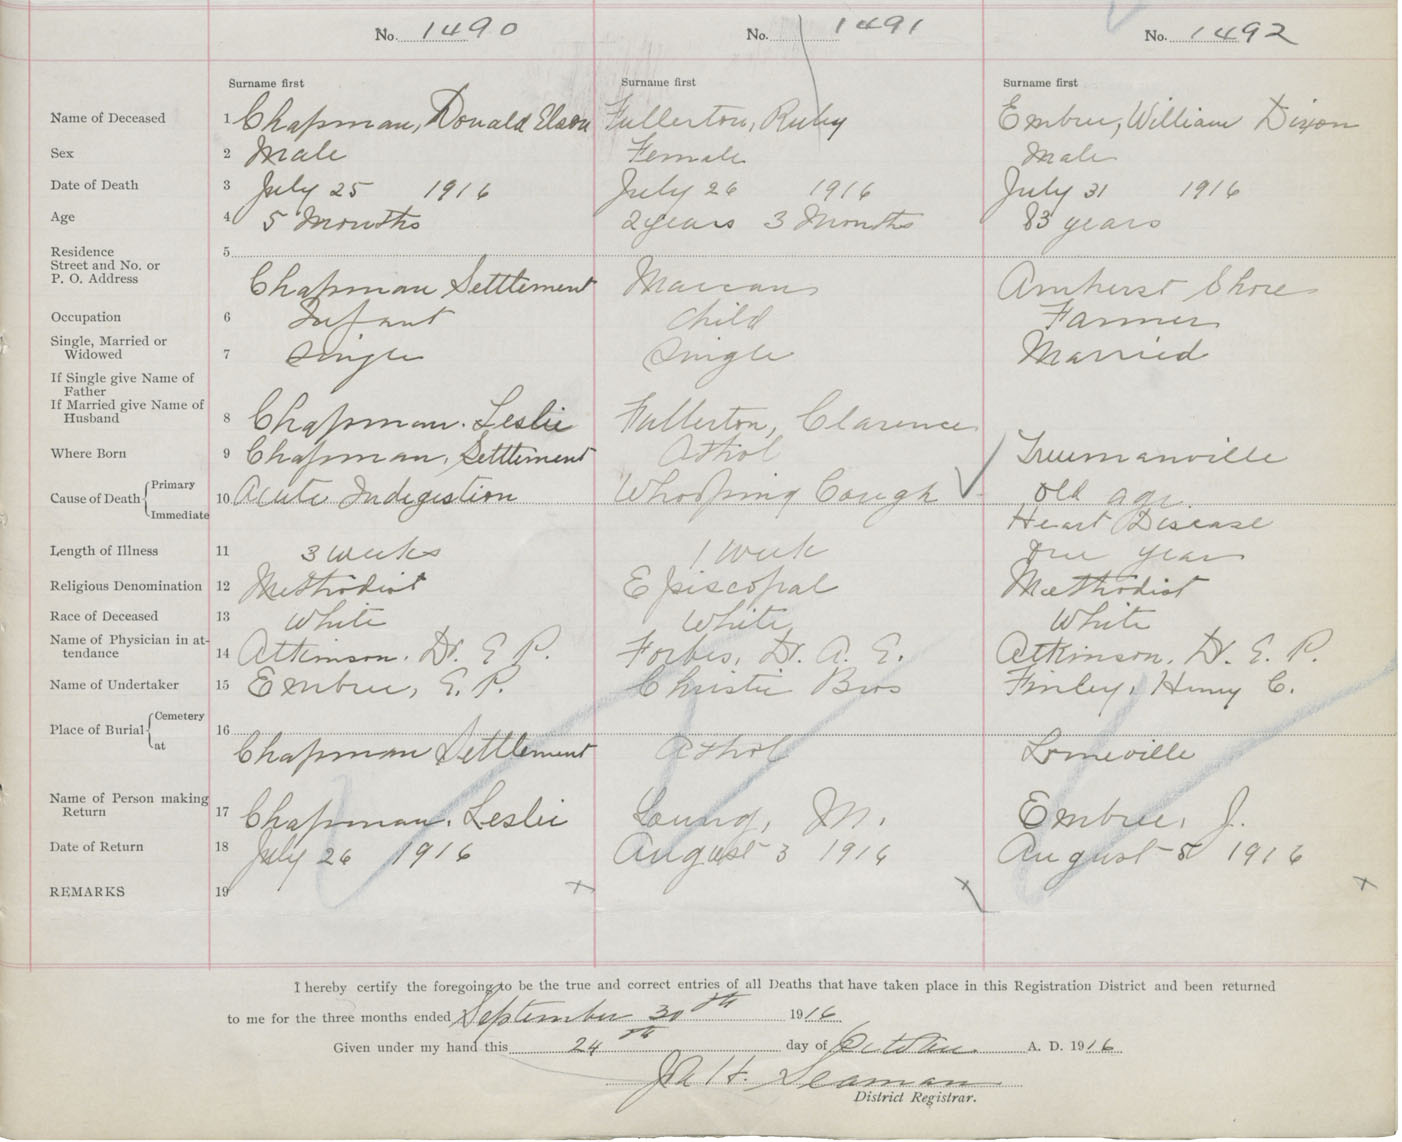 No. 1490 No. 1491 No. 1492
Surname first Surname first Surname first
Name of Deceased 1 Chapman, Donald Elson Fullerton, Ruby Embree, William Dixon
Sex 2 Male Female Male
Date of Death 3 July 25 1916 July 26 1916 July 31 1916
Age 4 5 Months 2 years 3 Months 83 years
Residence 5
Street and No. or
P. O. Address Chapman Settlement Maccan Amherst Shore
Occupation 6 Infant Child Farmer
Single, Married or
Widowed 7 Single Single Married
If Single give Name of
Father
If Married give Name of
Husband 8 Chapman. Leslie Fullerton, Clarence
Where Born 9 Chapman, Settlement Athol Truemanville
Cause of Death Primary 10 Acute Indigestion Whooping Cough Old age
Immediate Heart Disease
Length of Illness 11 3 weeks 1 week One year
Religious Denomination 12 Methodist Episcopal Methodist
Race of Deceased 13 White White White
Name of Physician in at-
tendance 14 Atkinson. Dr. E. P. Forbes, Dr. A. E. Atkinson. Dr. E. P.
Name of Undertaker 15 Embree, E. P. Christie Bros Finley, Henry C.
Place of Burial Cemetery 16
at Chapman Settlement Athol Lorneville
Name of Person making
Return 17 Chapman. Leslie Young, M. Embree, J.
Date of Return 18 July 26 1916 August 3 1916 August 5 1916
REMARKS 19 x x x
I hereby certify the foregoing to be the true and correct entries of all Deaths that have taken place in this Registration District and been returned
to me for the three months ended September 30th 1916
Given under my hand this 24th day of October A. D. 1916
H. Seaman
District Registrar.